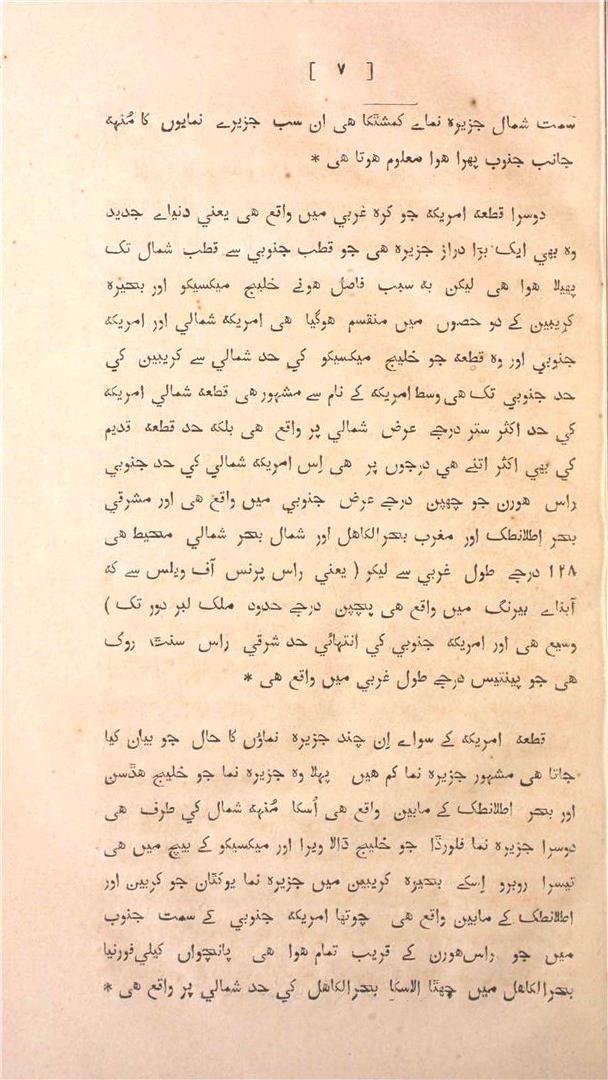 [ ۷ ]
سمت شمال جزیرہ نماے کمشٹکا ھی ان سب جزیرے نمایوں کا مُنہہ
جانب جنوب پھرا ھوا معلوم ھوتا ھی *
دوسرا قطعہ امریکہ جو کرہ غربي میں واقع ھی یعني دنیاے جدید
وہ بھي ایک بڑا دراز جزیرہ ھی جو قطب جنوبي سے قطب شمال تک
پھیلا ھوا ھی لیکن بہ سبب فاصل ھونے خلیج میکسیکو اور بحیرہ
کریبین کے دو حصوں میں منقسم ھوگیا ھی امریکہ شمالي اور امریکہ
جنوبي اور وہ قطعہ جو خلیج میکسیکو کي حد شمالي سے کریبین کي
حد جنوبي تک ھی وسط امریکہ کے نام سے مشہور ھی قطعہ شمالي امریکہ
کي حد اکثر ستر درجے عرض شمالي پر واقع ھی بلکہ حد قطعہ قدیم
کي بھي اکثر اتنے ھي درجوں پر ھی اِس امریکہ شمالي کي حد جنوبي
راس ھورن جو چھپن درجے عرض جنوبي میں واقع ھی اور مشرقي
بحر اِطلانطک اور مغرب بحرالکاھل اور شمال بحر شمالي محیط ھی
۱۲۸ درجے طول غربي سے لیکر ( یعني راس پرنس آف ویلس سے کہ
آبناے بیرنگ میں واقع ھی پنچپن درجے حدود ملک لبر دور تک )
وسیع ھی اور امریکہ جنوبي کي انتہائي حد شرقي راس سنٹ روک
ھی جو پینتیس درجے طول غربي میں واقع ھی *
قطعہ امریکہ کے سواے اِن چند جزیرہ نماؤں کا حال جو بیان کیا
جاتا ھی مشہور جزیرہ نما کم ھیں پہلا وہ جزیرہ نما جو خلیج ھڈسن
اور بحر اطلانطک کے مابین واقع ھی اُسکا مُنہہ شمال کي طرف ھی
دوسرا جزیرہ نما فلورڈا جو خلیج ڈالا ویرا اور میکسیکو کے بیچ میں ھی
تیسرا روبرو اِسکے بحیرہ کریبین میں جزیرہ نما یوکٹان جو کریبین اور
اطلانطک کے مابین واقع ھی چوتھا امریکہ جنوبي کے سمت جنوب
میں جو راس‌ھورن کے قریب تمام ھوا ھی پانچواں کیلي‌فورنیا
بحرالکاھل میں چھٹا الاسکا بحرالکاھل کي حد شمالي پر واقع ھی *